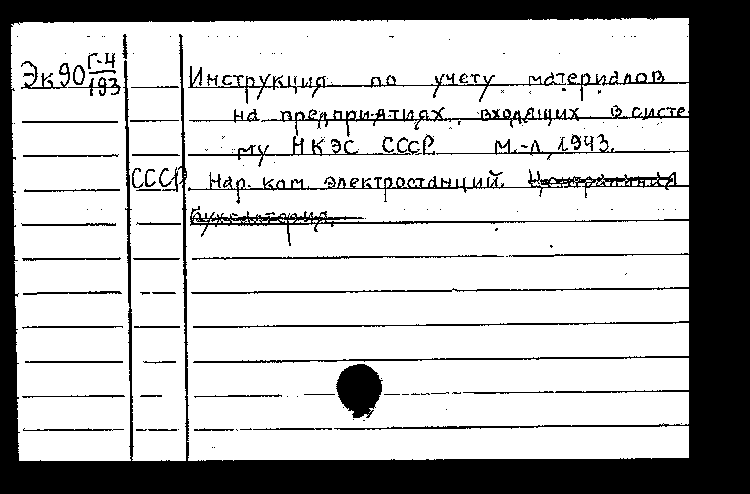 Эк90 Г-4/193 Инструкция по учету материалов
на предприятиях, входящих в систе-
му НКЭС СССР. М.-Л, 1943.
СССР. Нар. ком. электростанций. Центральная
бухгалтерия.